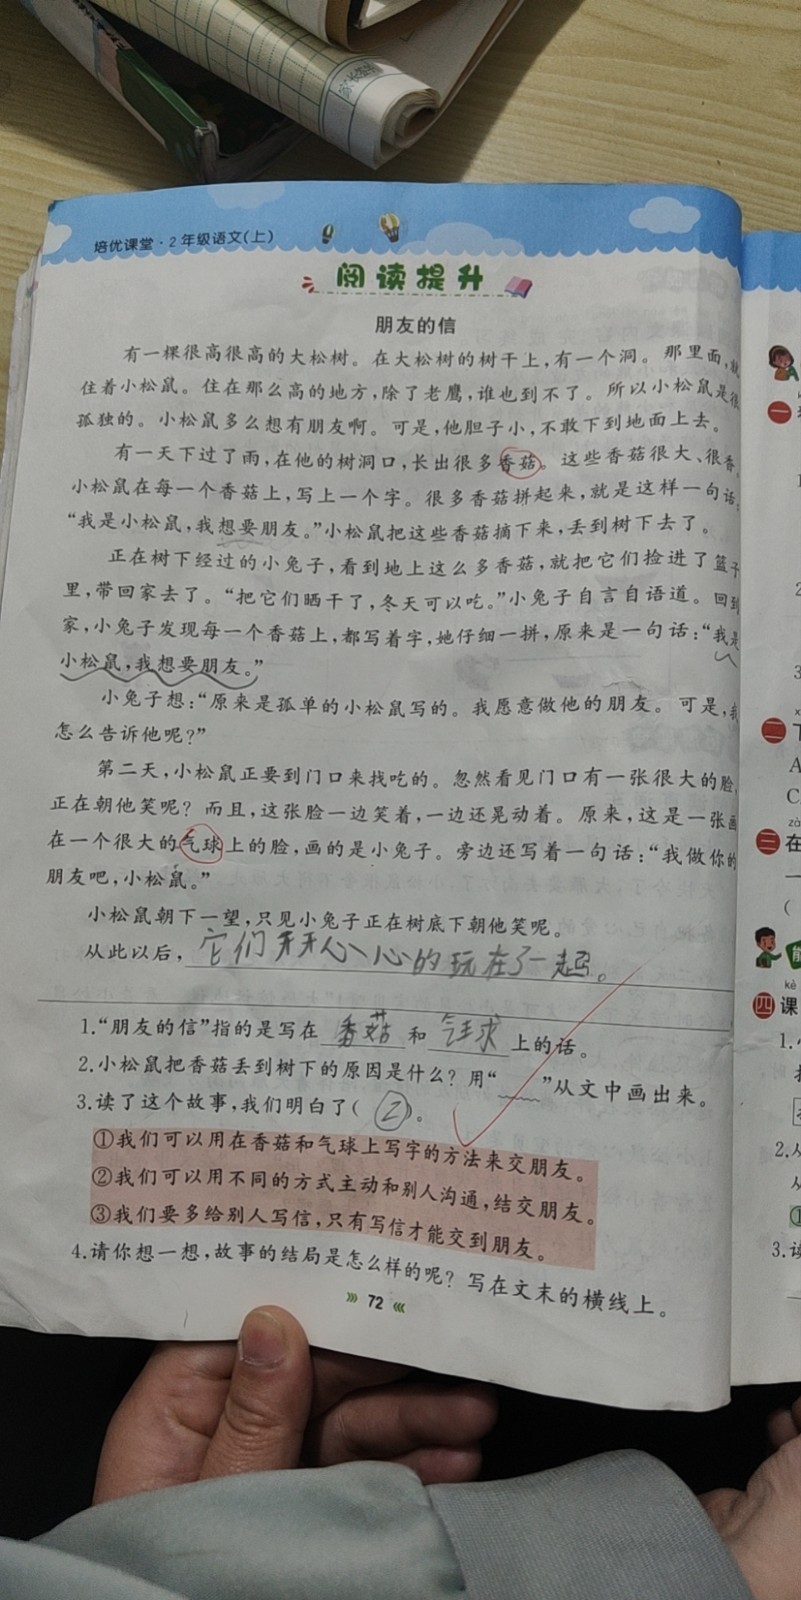 培优课堂·2年级语文(上)
阅读提升
朋友的信
有一棵很高很高的大松树。在大松树的树干上,有一个洞。那里面,就
住着小松鼠。住在那么高的地方,除了老鹰,谁也到不了。所以小松鼠是很
孤独的。小松鼠多么想有朋友啊。可是,他胆子小,不敢下到地面上去。
有一天下过了雨,在他的树洞口,长出很多香菇。这些香菇很大、很香。
小松鼠在每一个香菇上,写上一个字。很多香菇拼起来,就是这样一句话:
“我是小松鼠,我想要朋友。”小松鼠把这些香菇摘下来,丢到树下去了。
正在树下经过的小兔子,看到地上这么多香菇,就把它们捡进了篮子
里,带回家去了。“把它们晒干了,冬天可以吃。”小兔子自言自语道。回到
家,小兔子发现每一个香菇上,都写着字,她仔细一拼,原来是一句话:“我是
小松鼠,我想要朋友。”
小兔子想:“原来是孤单的小松鼠写的。我愿意做他的朋友。可是,我
怎么告诉他呢?”
第二天,小松鼠正要到门口来找吃的。忽然看见门口有一张很大的脸,
正在朝他笑呢?而且,这张脸一边笑着,一边还晃动着。原来,这是一张画
在一个很大的气球上的脸,画的是小兔子。旁边还写着一句话:“我做你的
朋友吧,小松鼠。”
小松鼠朝下一望,只见小兔子正在树底下朝他笑呢。
从此以后,它们开开心心的玩在了一起。
1.“朋友的信”指的是写在香菇和气球上的话。
2.小松鼠把香菇丢到树下的原因是什么?用“ ”从文中画出来。
3.读了这个故事,我们明白了( ② )。
①我们可以用在香菇和气球上写字的方法来交朋友。
②我们可以用不同的方式主动和别人沟通,结交朋友。
③我们要多给别人写信,只有写信才能交到朋友。
4.请你想一想,故事的结局是怎么样的呢?写在文末的横线上。
72
一
1.
2
3
二
A
C
zà
三 在
(
kè
四 课
1.
2.从
3.读